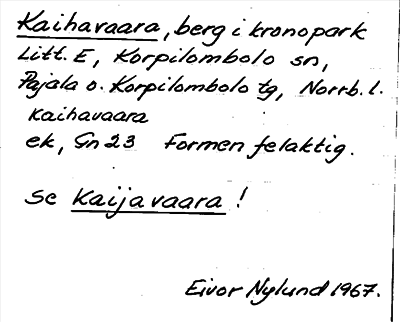 Kaihavaara, berg i kronopark
Litt. E, Korpilombolo sn,
Pajala o. Korpilombolo tg, Norrb. l.
Kaihavaara
ek, Gn 23 Formen felaktig.
se Kaijavaara !
Eivor Nylund 1967.